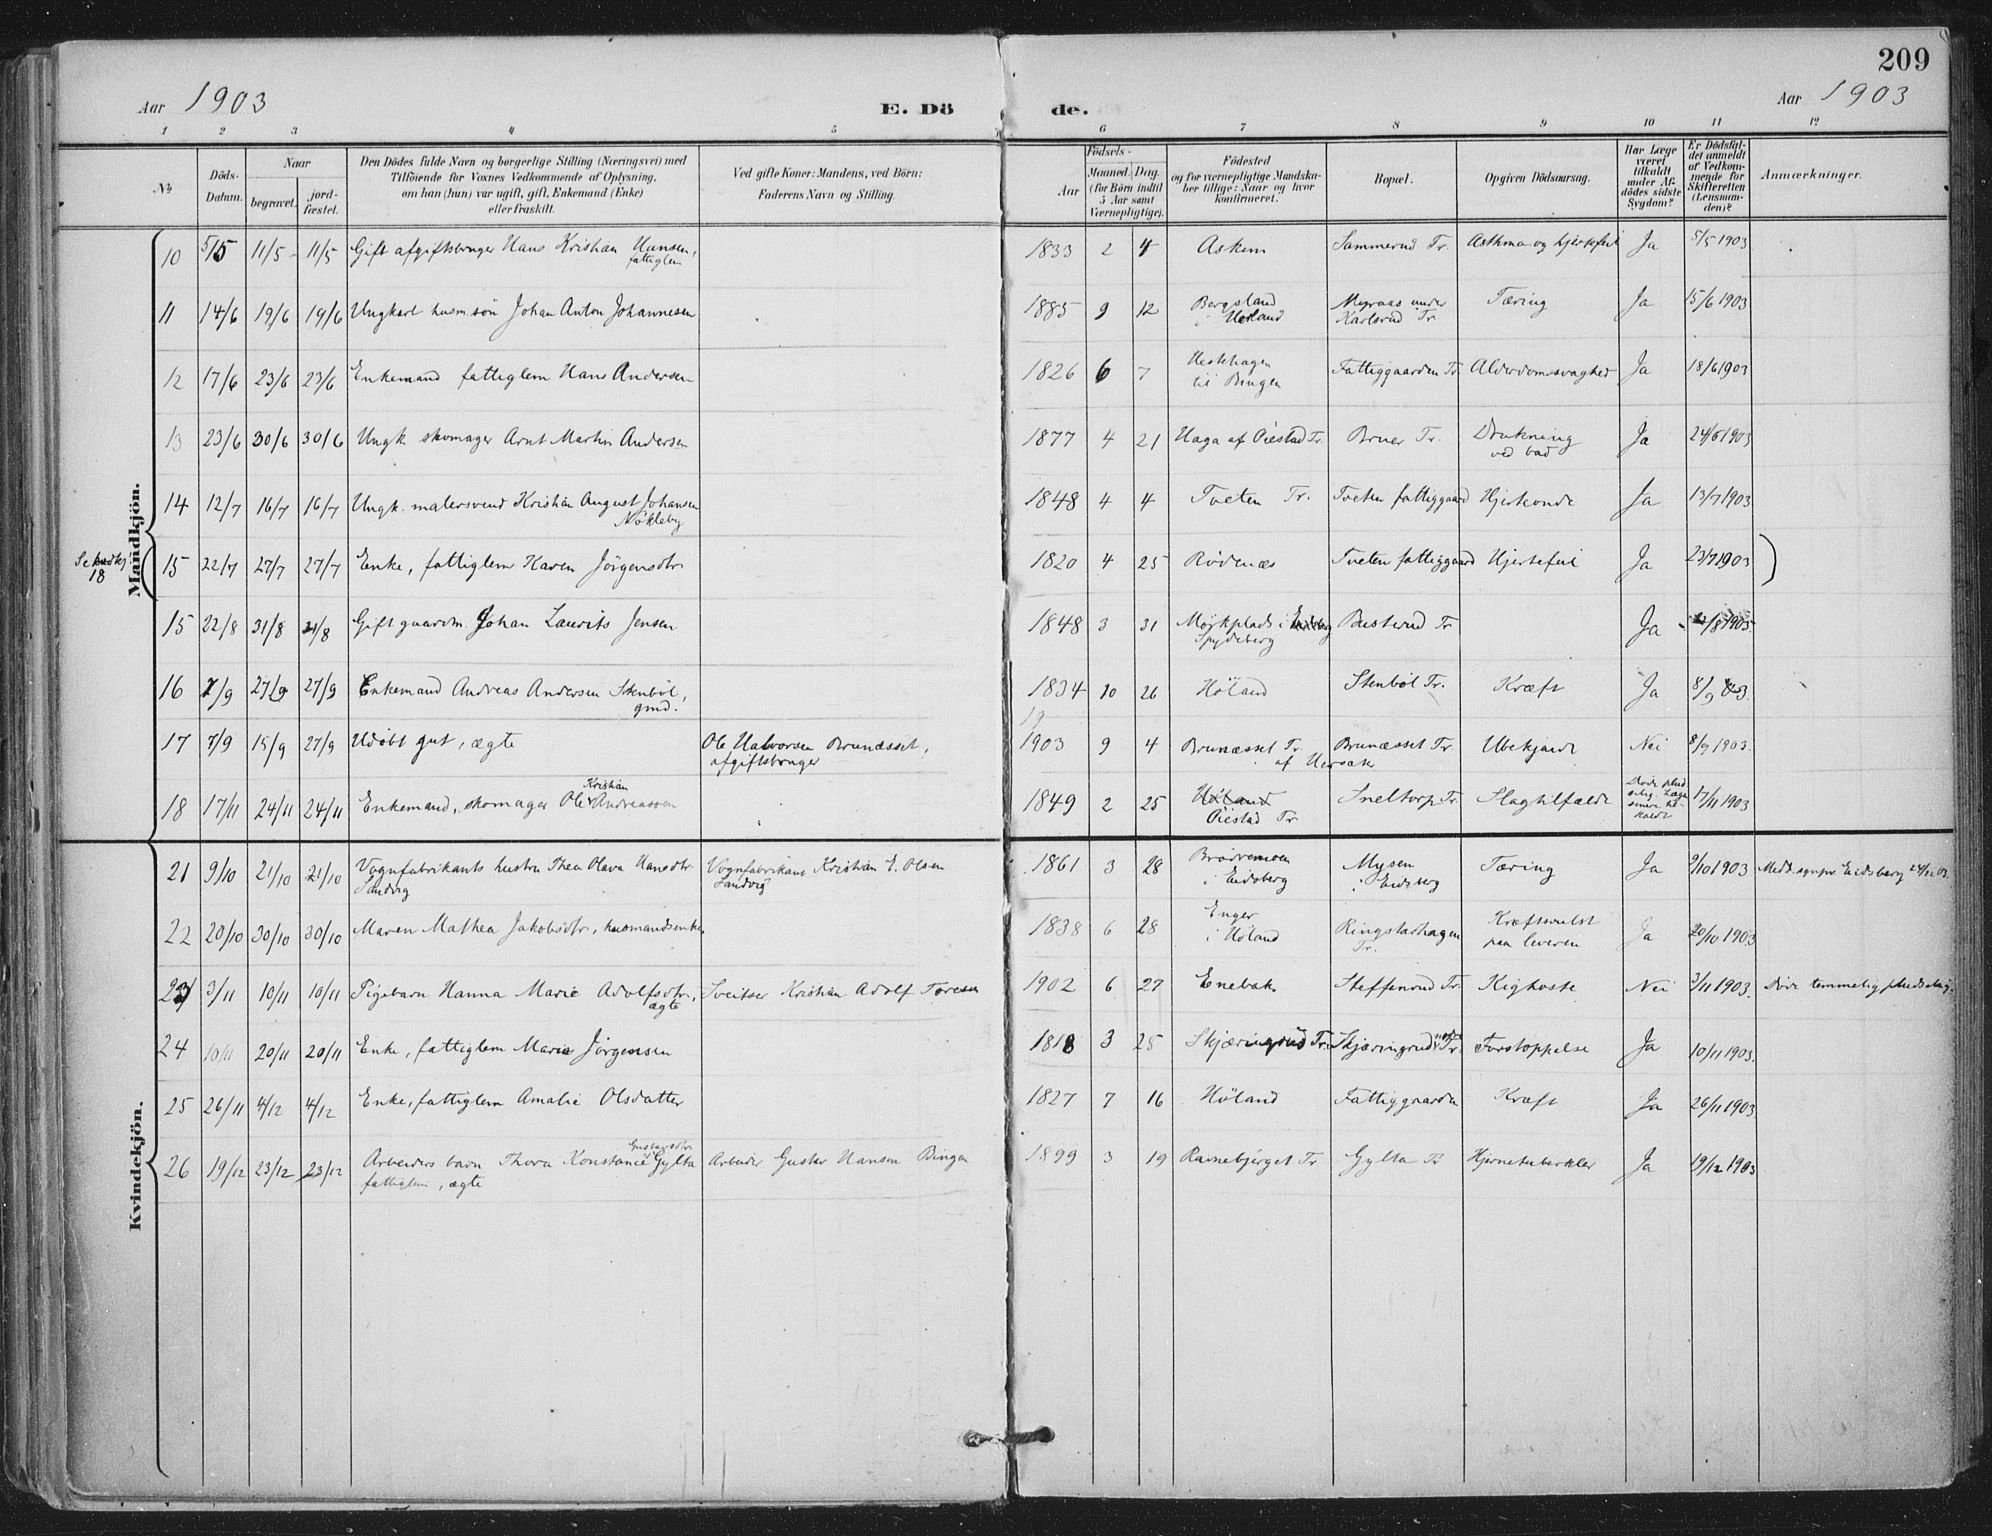 209
Aar 1903 E. Dö de. Aar 1903
1 2 3 4 5 6 7 8 9 10 11 12
№ Döds-Datum. Naar begravet. jord-fæstet. Den Dödes fulde Navn og borgerlige Stilling (Næringsvei) med Tilföiende for Voxnes Vedkommende af Oplysning, om han (hun) var ugift, gift, Enkemand (Enke) eller fraskilt. Ved gifte Koner: Mandens, ved Börn: Faderens Navn og Stilling. Födsels- Aar Maaned. Dag. (for Börn indtil 5 Aar samt Værnepligtige). Födested og for værnepligtige Mandskaber tillige: Naar og hvor konfirmeret. Bopæl. Opgiven Dödsaarsag. Har Læge været tilkaldt under Afdödes sidste Sygdom? Er Dödsfaldet anmeldt af Vedkommende for Skifteretten (Lensmanden)? Anmærkninger.
Mandkjön.
10 5/5 11/5 11/5 Gift afgiftsbruger Hans Kristian Hansen, fattiglem 1833 2 4 Askem Sammerud Tr. Asthma og hjertefeil Ja 5/5 1903
11 14/6 19/6 19/6 Ungkarl husm.søn Johan Anton Johannesen 1885 9 12 Bergsland i Høland Myraas under Karlsrud Tr. Tæring Ja 15/6 1903
12 17/6 23/6 23/6 Enkemand fattiglem Hans Andersen 1826 6 7 Hestehagen til Bingen Fattiggaarden Tr. Alderdomssvaghed Ja 18/6 1903
13 23/6 30/6 30/6 Ungk. skomager Arnt Martin Andersen 1877 4 21 Haga af Øiestad Tr. Bruer Tr. Drukning ved bad Ja 24/6 1903
14 12/7 16/7 16/7 Ungk. malersvend Kristian August Johansen Nøkleby 1848 4 4 Tveten Tr. Tveten fattiggaard Hjerteonde Ja 13/7 1903
Se kvdkj. 18 15 22/7 27/7 27/7 Enke, fattiglem Karen Jörgensdtr 1820 4 25 Rødenæs Tveten fattiggaard Hjertefeil Ja 23/7 1903
15 22/8 31/8 31/8 Gift gaardm. Johan Laurits Jensen 1848 3 31 i Spydeberg Busterud Tr Ja /8 1903
16 7/9 27/9 27/9 Enkemand Andreas Andersen Stenbøl, gmd. 1834 10 26 Høland Stenbøl Tr. Kræft Ja 8/9 03.
17 7/9 15/9 27/9 Udøbt gut, ægte Ole Halvorsen Brunæsset, afgiftsbruger 19 1903 9 4 Brunæsset Tr. af Hersæter Brunæsset Tr. Ubekjendt Nei 8/9 1903.
18 17/11 24/11 24/11 Enkemand, skomager Ole Kristian Andreassen 1849 2 25 Høland Øiestad Tr Sneltorp Tr. Slagtilfælde Døde pludselig. 17/11 1903
Kvindekjön.
21 9/10 21/10 21/10 Vognfabrikants hustru Thea Olava Hansdtr. Sandvig Vognfabrikant Kristian E. Olsen Sandvig 1861 3 28 Brødremoen i Eidsberg Mysen i Eidsberg Tæring Ja 9/10 1903 Medd. sgnpr. Eidsberg 24/12 03.
22 20/10 30/10 30/10 Maren Mathea Jakobsdtr, husmandsenke 1838 6 28 Enger i Høland Ringstadhagen Tr. Kræftsvulst paa leveren Ja 20/10 1903
23 3/11 10/11 10/11 Pigebarn Hanna Marie Adolfsdtr, ægte Sveitser Kristian Adolf Toresen 1902 6 27 Enebak Steffenrud Tr. Kighoste Nei 3/11 1903. Døde temmelig pludselig.
24 10/11 20/11 20/11 Enke, fattiglem Marie Jörgensen 1818 3 25 Skjæringrud Tr. Skjæringrud nedre Tr. Forstoppelse Ja 10/11 1903.
25 26/11 4/12 4/12 Enke, fattiglem Amalie Olsdatter 1827 7 16 Høland Fattiggaarden Kræft Ja 26/11 1903
26 19/12 23/12 23/12 Arbeiders barn Thora Konstance Gustavsdtr Gylta fattiglem, ægte Arbeider Gustav Hansen Bingen 1899 3 19 Ravnebjerget Tr Gylta Tr Hjernetuberkler Ja 19/12 1903